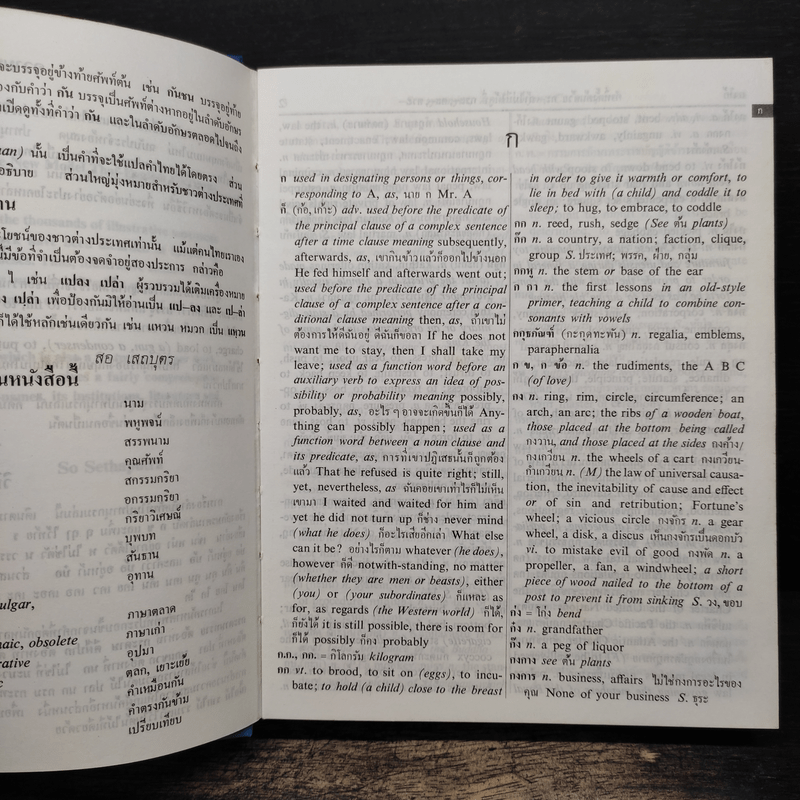 จะบรรจุอยู่ข้างท้ายศัพท์ต้น เช่น กันชน บรรจุอยู่ท้าย
องกับคำว่า กัน บรรจุเป็นศัพท์ต่างหากอยู่ในลำดับอักษร
เปิดดูทั้งที่คำว่า กัน และในลำดับอักษรตลอดไปจนถึง
an) นั้น เป็นคำที่จะใช้แปลคำไทยได้โดยตรง ส่วน
อธิบาย ส่วนใหญ่มุ่งหมายสำหรับชาวต่างประเทศที่
าน
โยชน์ของชาวต่างประเทศเท่านั้น แม้แต่คนไทยเราเอง
มีข้อที่จำเป็นต้องจดจำอยู่สองประการ กล่าวคือ
ๆ เช่น แปลง เปล่า ผู้รวบรวมได้เติมเครื่องหมาย
ง เปล่า เพื่อป้องกันมิให้อ่านเป็น แป–ลง และ เป–ล่า
ก็ได้ใช้หลักเช่นเดียวกัน เช่น แหวน หมวก เป็น
สอ เสถบุตร
นหนังสือนี้
นาม
พหูพจน์
สรรพนาม
คุณศัพท์
สกรรมกริยา
อกรรมกริยา
กริยาวิเศษณ์
บุพบท
สันธาน
อุทาน
ulgar,
ภาษาตลาด
naic, obsolete
ภาษาเก่า
rative
อุปมา
ตลก, เยาะเย้ย
คำเหมือนกัน
คำตรงกันข้าม
เปรียบเทียบ
ก
ก
ก used in designating persons or things, cor-
responding to A, as, นาย ก Mr. A
ก็ (ก้อ, เก้าะ) adv. used before the predicate of
the principal clause of a complex sentence
after a time clause meaning subsequently,
afterwards, as, เขากินข้าวแล้วก็ออกไปข้างนอก
He fed himself and afterwards went out;
used before the predicate of the principal
clause of a complex sentence after a con-
ditional clause meaning then, as, ถ้าเขาไม่
ต้องการให้ดีฉันอยู่ ดีฉันก็ขอลา If he does not
want me to stay, then I shall take my
leave; used as a function word before an
auxiliary verb to express an idea of pos-
sibility or probability meaning possibly,
probably, as, อะไร ๆ อาจจะเกิดขึ้นก็ได้ Any-
thing can possibly happen; used as a
function word between a noun clause and
its predicate, as, การที่เขาปฏิเสธนั้นก็ถูกต้อง
แล้ว That he refused is quite right; still,
yet, nevertheless, as ฉันคอยเขาเท่าไรก็ไม่เห็น
เขามา I waited and waited for him and
yet he did not turn up ก็ช่าง never mind
(what he does) ก็อะไรเสียอีกเล่า What else
can it be? อย่างไรก็ตาม whatever (he does),
however ก็ดี notwith-standing, no matter
(whether they are men or beasts), either
(you) or (your subordinates) ก็แหละ as
for, as regards (the Western world) ก็ได้,
ก็ยังได้ it is still possible, there is room for
ก็ได้ possibly ก็คง probably
ก.ก., กก. = กิโลกรัม kilogram
กก vt. to brood, to sit on (eggs), to incu-
bate; to hold (a child) close to the breast
in order to give it warmth or comfort, to
lie in bed with (a child) and coddle it to
sleep; to hug, to embrace, to coddle
กก n. reed, rush, sedge (See ต้น plants)
ก๊ก n. a country, a nation; faction, clique,
group S. ประเทศ; พรรค, ฝ่าย, กลุ่ม
กกหู n. the stem or base of the ear
ก กา n. the first lessons in an old-style
primer, teaching a child to combine con-
sonants with vowels
กกุธภัณฑ์ (กะกุดทะพัน) n. regalia, emblems,
paraphernalia
ก ข, ก ข้อ n. the rudiments, the A B C
(of love)
กง n. ring, rim, circle, circumference; an
arch, an arc; the ribs of a wooden boat,
those placed at the bottom being called
กงวาน, and those placed at the sides กงค้าง/
กงเกวียน n. the wheels of a cart กงเกวียน-
กำเกวียน n. (M) the law of universal causa-
tion, the inevitability of cause and effect
or of sin and retribution; Fortune's
wheel; a vicious circle กงจักร n. a gear
wheel, a disk, a discus เห็นกงจักรเป็นดอกบัว
vi. to mistake evil of good กงพัด n. a
propeller, a fan, a windwheel; a short
piece of wood nailed to the bottom of a
post to prevent it from sinking S. วง, ขอบ
ก่ง = โก่ง bend
ก๋ง n. grandfather
ก๊ง n. a peg of liquor
กงกาง see ต้น plants
กงการ n. business, affairs ไม่ใช่กงการอะไรของ
คุณ None of your business S. ธุระ